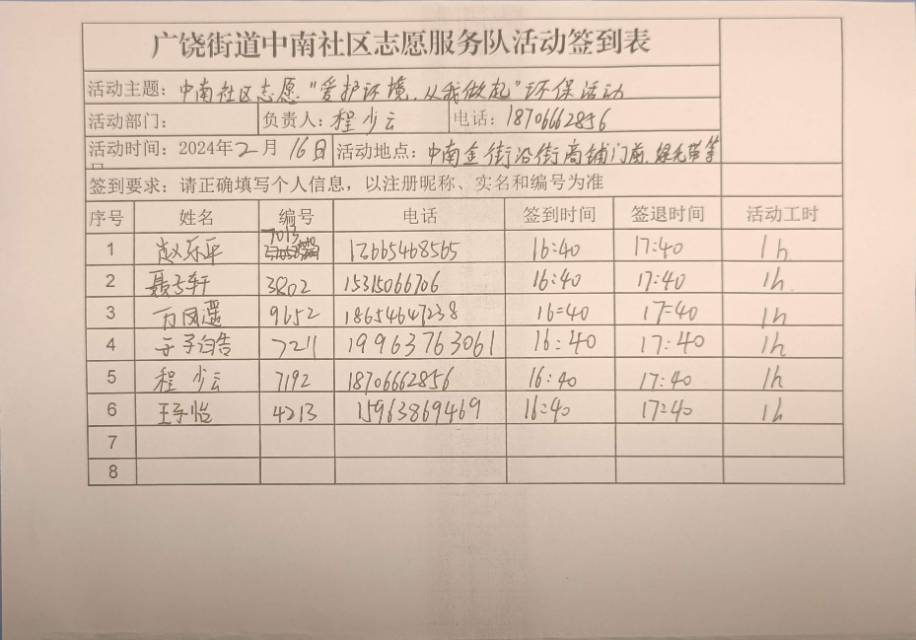 广饶街道中南社区志愿服务队活动签到表
活动主题：中南社区志愿“爱护环境，从我做起”环保活动
活动部门： 负责人：程少云 电话：18706662856
活动时间：2024年2月16日 活动地点：中南金街沿街商铺门前，绿化带等
签到要求：请正确填写个人信息，以注册昵称、实名和编号为准
序号 姓名 编号 电话 签到时间 签退时间 活动工时
1 赵乐平 7013 12665468565 16:40 17:40 1h
2 聂子轩 3802 15315066706 16:40 17:40 1h
3 万凤遥 9652 18654647238 16:40 17:40 1h
4 7211 19963763061 16:40 17:40 1h
5 程少云 7192 18706662856 16:40 17:40 1h
6 王子怡 4213 15963869469 16:40 17:40 1h
7
8